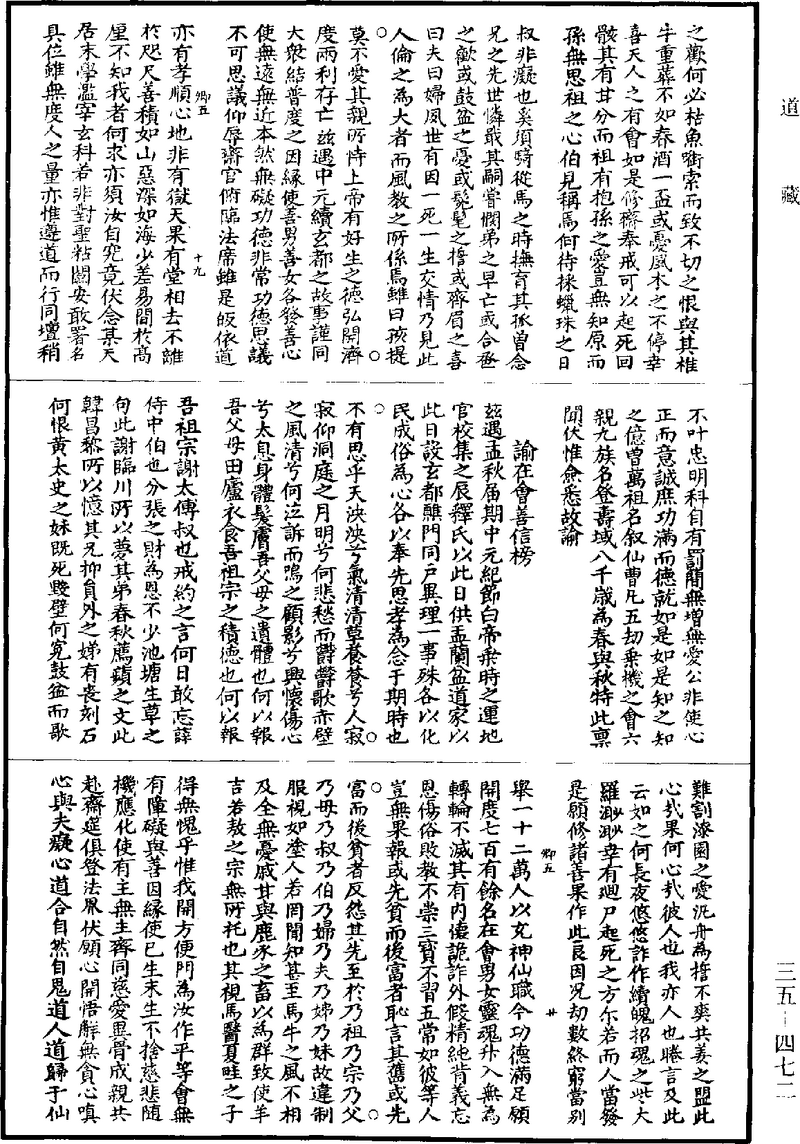 道藏
之歡何必枯魚啣索而致不切之恨與其椎
牛重墓不如春酒一盃或憂風木之不停幸
喜天人之有會如是修齋奉戒可以起死回
骸其有甘分而祖有抱孫之愛豈無知原而
孫無思祖之心伯見稱焉何待捺蠟珠之日
叔非癡也奚須騎從馬之時撫育其孤曾念
兄之先世憐戢其嗣嘗憫弟之早亡或合巹
之歡或鼓盆之憂或髧髦之誓或齊眉之喜
曰夫曰婦夙世有因一死一生交情乃見此
人倫之為大者而風教之所係焉雖曰孩提
莫不愛其親所恃上帝有好生之德弘開濟
度兩利存亡玆遇中元續玄都之故事謹同
大眾結普度之因緣使善男善女各發善心
使無遠無近本然無礙功德非常功德思議
不可思議仰辱齋官俯臨法席雖是皈依道
卿五 十九
亦有孝順心地非有獄天果有堂相去不離
於咫尺善積如山惡深如海少差易間於高
厘不知我者何求亦須汝自究竟伏念某天
居末學濫宰玄科若非對聖粘闕安敢署名
具位雖無度人之量亦惟遵道而行同壇稍
不叶忠明科自有罰簡無增無愛公非使心
正而意誠庶功滿而德就如是如是知之知
之億曾萬祖名敘仙曹凡五劫乘機之會六
親九族名登壽域八千歲為春與秋特此稟
聞伏惟僉悉故諭
諭在會善信榜
玆遇孟秋屆期中元紀節白帝乘時之運地
官校集之辰釋氏以此日供盂蘭盆道家以
此日設玄都醮門同戶異理一事殊各以化
民成俗為心各以奉先思孝為念于期時也
不有思乎天泱泱兮氣清清草養養兮人寂
寂仰洞庭之月明兮何悲愁而鬱鬱歌赤壁
之風清兮何泣訴而嗚之顧影兮興懷傷心
兮太息身體髮膚吾父母之遺體也何以報
吾父母田廬衣食吾祖宗之積德也何以報
吾祖宗謝太傅叔也戒約之言何日敢忘薛
侍中伯也分張之財為恩不少池塘生草之
句此謝臨川所以夢其弟春秋薦蘋之文此
韓昌黎所以憶其兄抑員外之娣有喪刻石
何恨黃太史之妹既死毀壁何冤鼓盆而歌
難割漆園之愛汎舟為誓不爽共姜之盟此
心弐果何心弐彼人也我亦人也睠言及此
云如之何長夜悠悠詐作續魄招魂之些大
羅渺渺幸有迴尸起死之方尔若而人當發
是願修諸善果作此良因況劫數終窮當別
卿五 廿
舉一十二萬人以充神仙職令功德滿足願
開度七百有餘名在會男女靈魂升入無為
轉輪不滅其有內懷詭詐外假精純背義忘
恩傷俗敗教不崇三寶不習五常如彼等人
豈無果報或先貧而後富者恥言其舊或先
富而後貧者反怨其先至於乃祖乃宗乃父
乃母乃叔乃伯乃婦乃夫乃娣乃妹故違制
服視如塗人若罔聞知甚至馬牛之風不相
及全無憂戚甘與鹿豕之畜以為群致使羊
吉若敖之宗無所托也其視馬醫夏畦之子
得無愧乎惟我開方便門為汝作平等會無
有障礙與善因緣使已生未生不捨慈悲隨
機應化使有主無主齊同慈愛異骨成親共
赴齋筵俱登法界伏願心開悟解無貪心嗔
心與夫癡心道合自然自鬼道人道歸于仙
三五—四七二